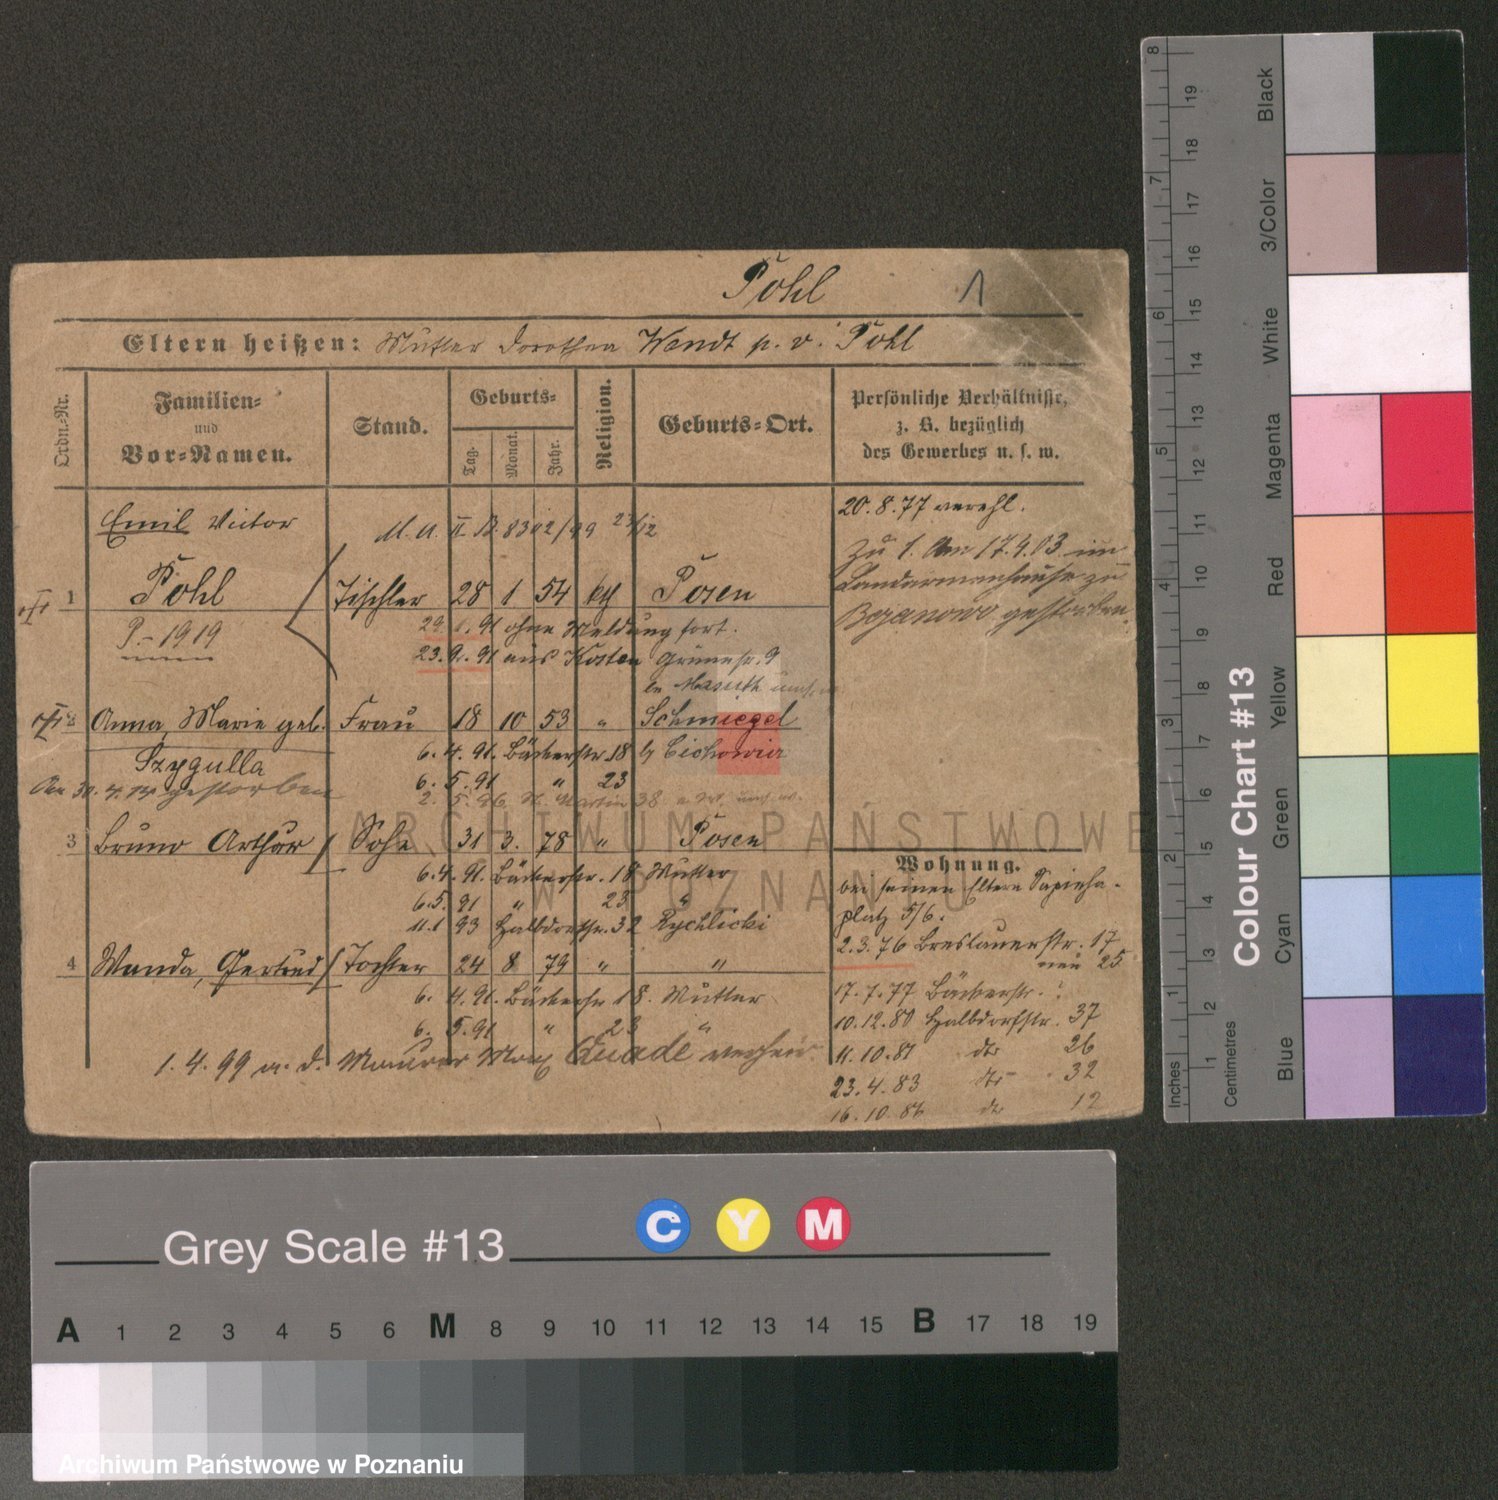 Pohl 1
Eltern heißen: Mutter Dorothea Wendt p. v. Pohl
Ordn.-Nr.
Familien-
und
Vor-Namen.
Stand.
Geburts-
Tag. Monat. Jahr.
Religion.
Geburts-Ort.
Persönliche Verhältnisse,
z. B. bezüglich
des Gewerbes u. s. w.
Emil Victor
20.8.77 verehl.
Zu 1. Am 17.9.03 im
Landarmenhause zu
Bojanowo gestorben.
1 Pohl Tischler 28 1 54 Posen
P.-1919
29.1.91 ohne Meldung fort.
23.9.91 aus Kosten
Anna, Marie geb. Frau 18 10 53 " Schmiegel
Szygulla
6.4.91. Bäckerstr. 18 Cichowicz
6.5.91 " 23
gestorben
3 Bruno Arthur Sohn 31 3. 78 " Posen
6.4.91. Bäckerstr. 18 Mutter
6.5.91 " 23 "
11.1 93 Halbdorfstr. 32 Rychlicki
4 Wanda, Gertrud Tochter 24 8 79 " "
6. 4.91. Bäckerstr 18. Mutter
6. 5.91 " 23 "
1.4.99 a. d. Maurer Max Quade verheir.
Wohnung.
bei seinen Eltern Sapieha-
platz 5/6.
2.3.76 Breslauerstr. 17
neu 25
17.7.77 Bäckerstr.
10.12.80 Halbdorfstr. 37
11.10.81 dto 26
23.4.83 dto 32
16.10.86 dto 12
ARCHIWUM PAŃSTWOWE
W POZNANIU
Inches
1 2 3 4 5 6 7 8
Centimetres
1 2 3 4 5 6 7 8 9 10 11 12 13 14 15 16 17 18 19
Colour Chart #13
Blue Cyan Green Yellow Red Magenta White 3/Color Black
Grey Scale #13
C Y M
A 1 2 3 4 5 6 M 8 9 10 11 12 13 14 15 B 17 18 19
Archiwum Państwowe w Poznaniu